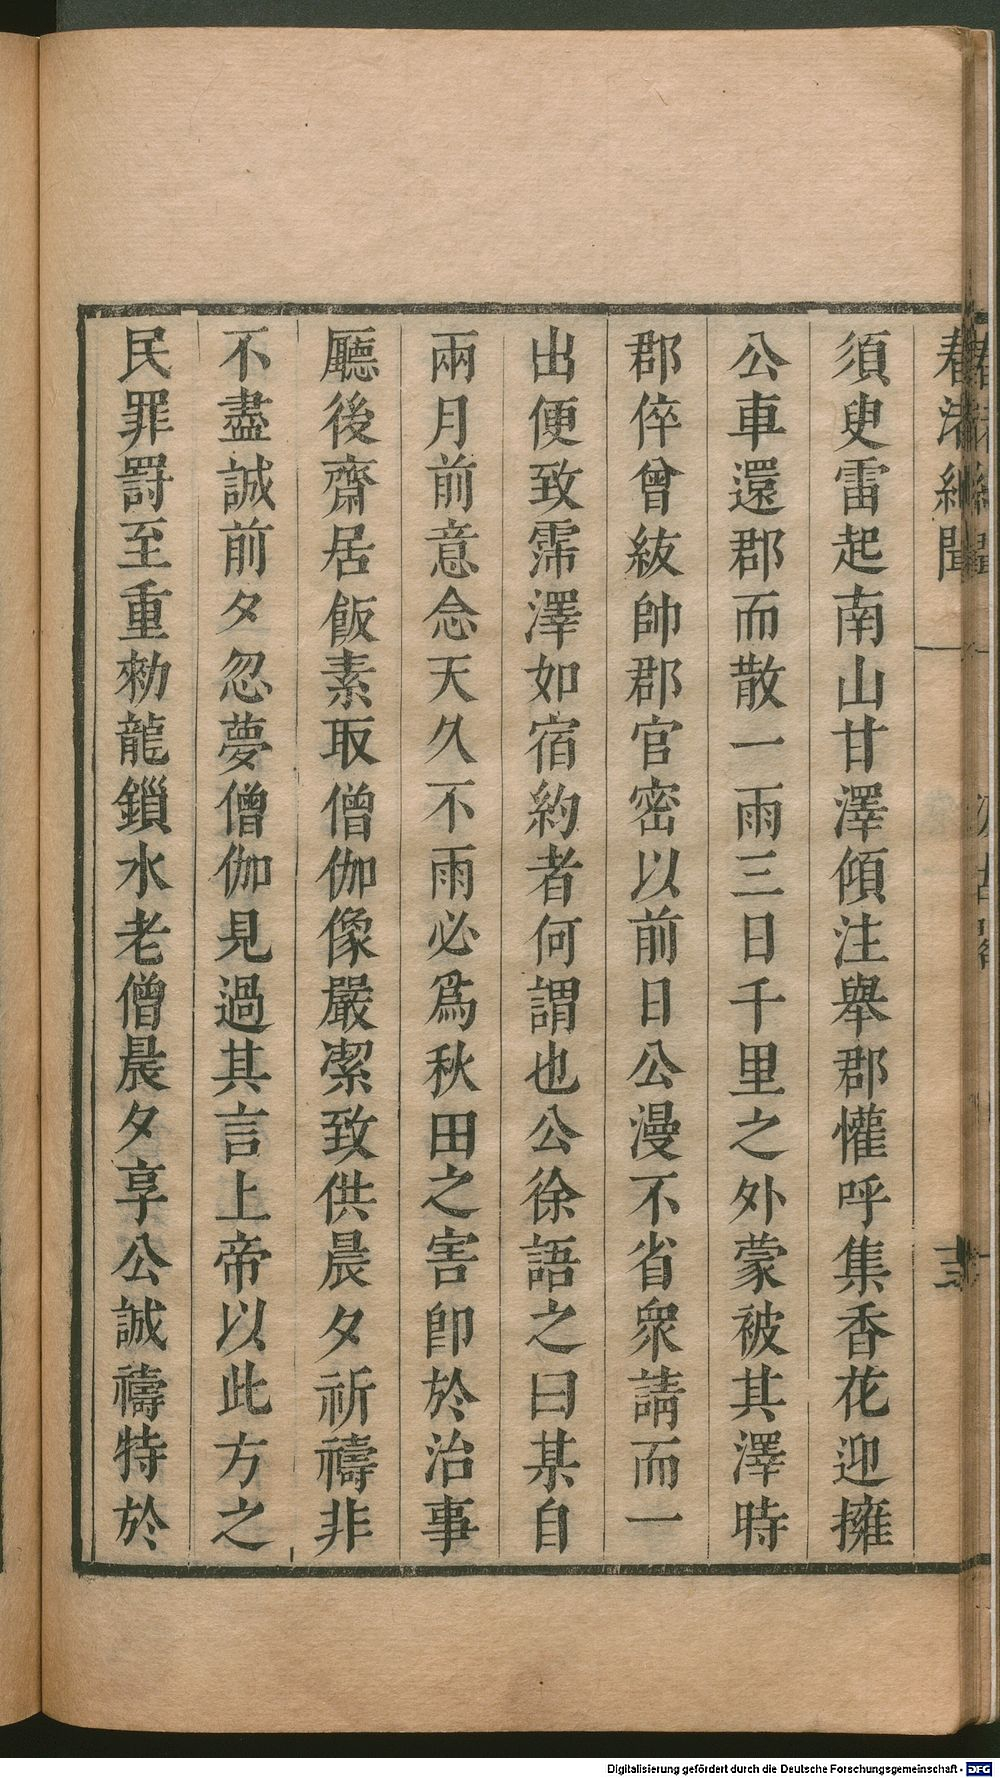 春渚紀聞
須臾雷起南山甘澤傾注舉郡懽呼集香花迎擁
公車還郡而散一雨三日千里之外蒙被其澤時
郡倅曾紘帥郡官密以前日公漫不省衆請而一
出便致霈澤如宿約者何謂也公徐語之曰某自
兩月前意念天久不雨必爲秋田之害卽於治事
廳後齋居飯素取僧伽像嚴潔致供晨夕祈禱非
不盡誠前夕忽夢僧伽見過其言上帝以此方之
民罪罸至重勑龍鎻水老僧晨夕享公誠禱特於
Digitalisierung gefördert durch die Deutsche Forschungsgemeinschaft - DFG